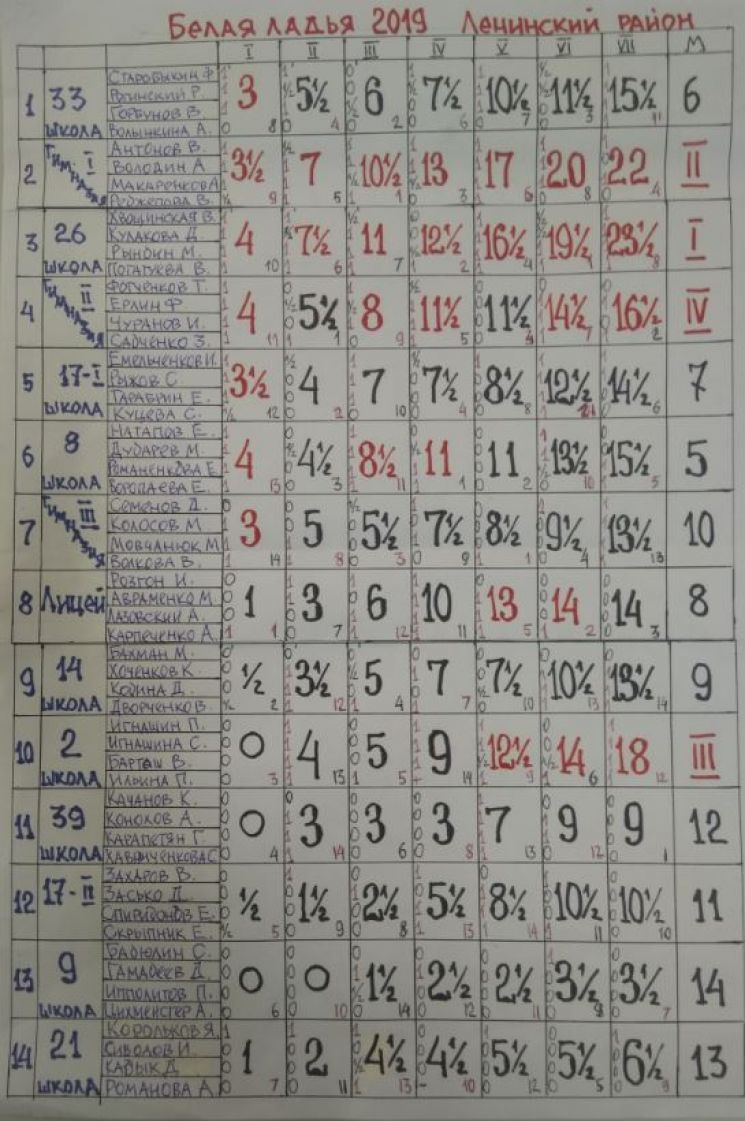 Белая ладья 2019 Ленинский район
I II III IV V VI VII М
1 33 школа
Старобыкин Ф
Рогинский Р.
Горбунов В.
Волынкина А.
3 5½ 6 7½ 10½ 11½ 15½ 6
2 Гимназия I
Антонов В.
Володин А
Макаренкова
Реджепова В.
3½ 7 10½ 13 17 20 22 II
3 26 школа
Хвощинская В.
Кулакова Д.
Рындин М.
4 7½ 11 12½ 16½ 19½ 23½ I
4 Гимназия II
Ерлин Ф
Чуранов И.
Савченко З.
4 5½ 8 11½ 11½ 14½ 16½ IV
5 17-I школа
Емельченков И.
Рыжов С.
Тарабрин Е.
Куцева С.
3½ 4 7 7½ 8½ 12½ 14½ 7
6 8 школа
Натапов Е.
Дударев М.
Романенкова Е
Воропаева Е.
4 4½ 8½ 11 11 13½ 15½ 5
7 Гимназия III
Семенов Д.
Колосов М
Мовчанюк М
Волкова В.
3 5 5½ 7½ 8½ 9½ 13½ 10
8 Лицей
Розгон И.
Авраменко М.
Лазовский А.
Карпеченко А.
1 3 6 10 13 14 14 8
9 14 школа
Бахман М.
Хоченков К.
Кодина Д.
Дворченко В.
½ 3½ 5 7 7½ 10½ 13½ 9
10 2 школа
Игнашин П.
Игнашина С.
Барташ В.
Ильина П.
0 4 5 9 12½ 14 18 III
11 39 школа
Качанов К.
Конохов А.
Карапетян Г.
0 3 3 3 7 9 9 12
12 17-II
Захаров В.
Засько Д.
Спиридонов Е.
Скрыпник Е.
½ 1½ 2½ 5½ 8½ 10½ 10½ 11
13 9 школа
Бадюлин С.
Гамадеев Д.
Ипполитов П.
Цихмейстер А.
0 0 1½ 2½ 2½ 3½ 3½ 14
14 21 школа
Корольков Я.
Сиволов И.
Кадык Д.
Романова А
1 2 4½ 4½ 5½ 5½ 6½ 13